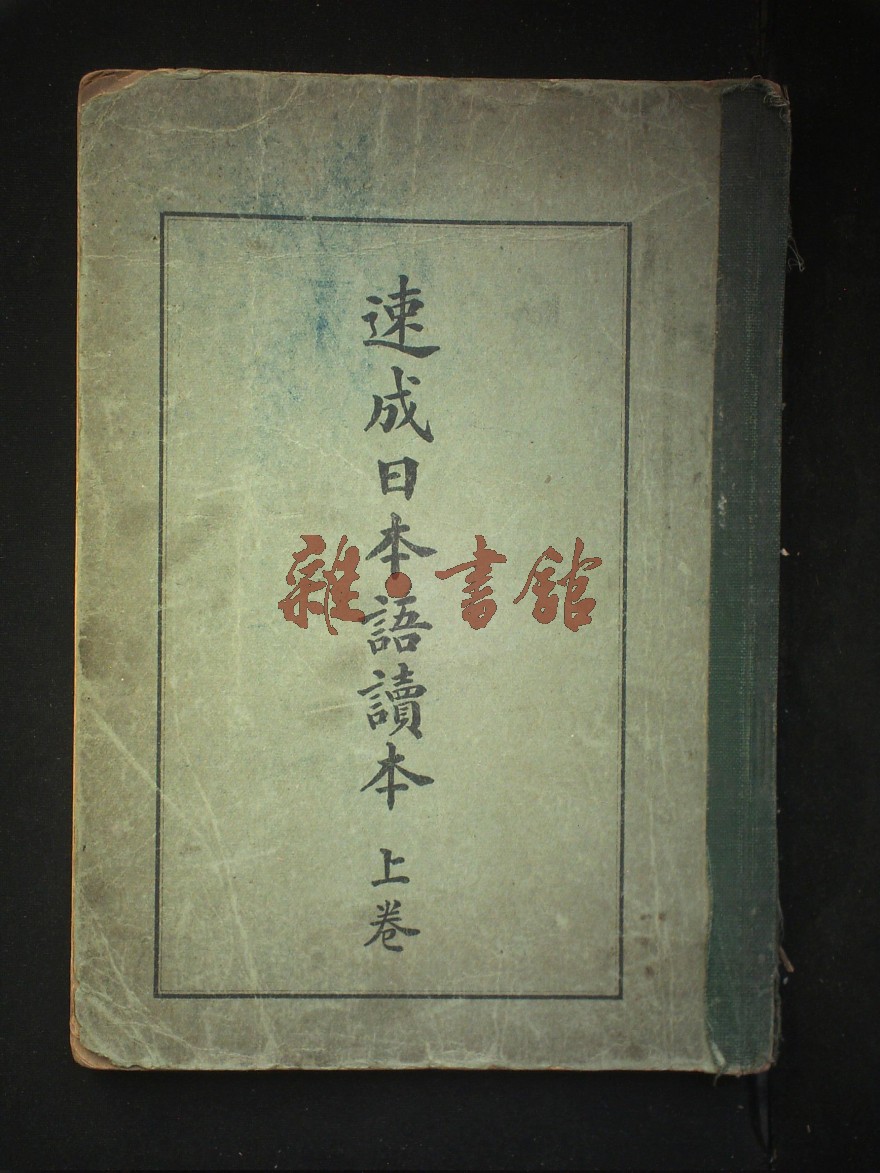 速成日本語讀本 上卷
雜·書館